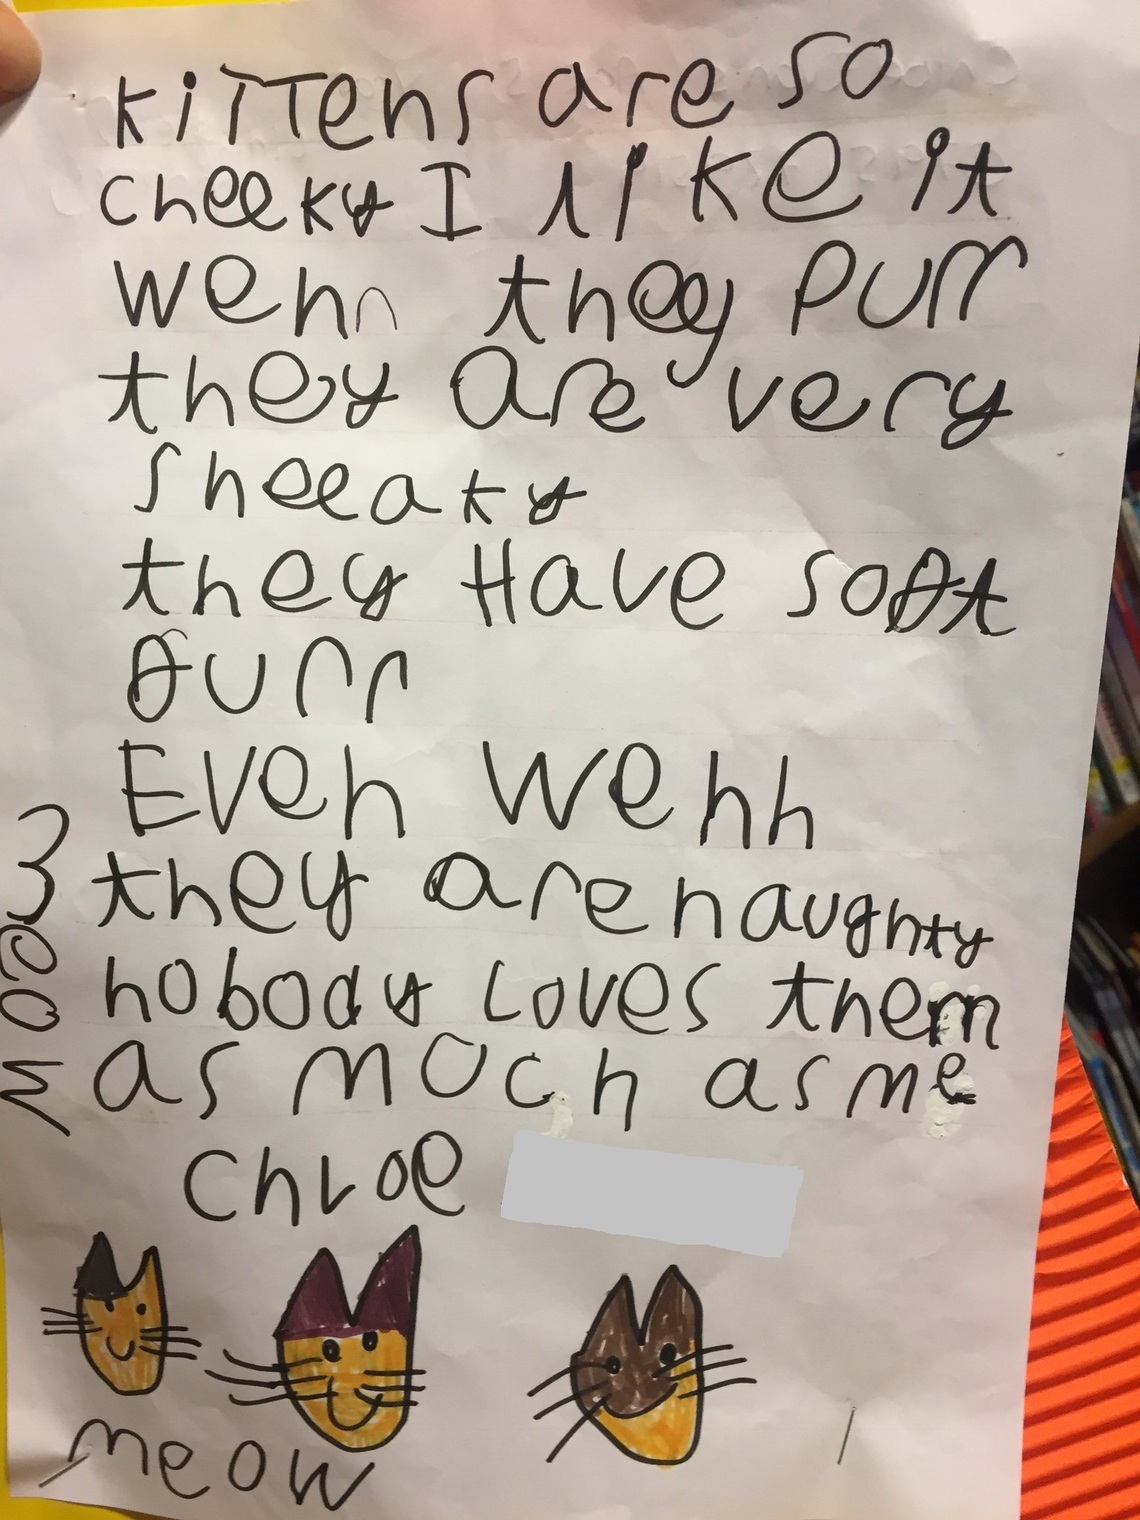 kiTTens are so
cheeky I like it
wehn they purr
they are very
sneeaky
they Have soft
furr
Even wehn
they are naughty
nobody Loves them
as moch as me
chloe
meoow
meow